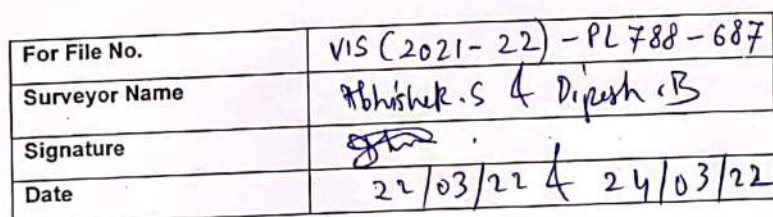 For File No. VIS (2021-22) - PL 788 - 687
Surveyor Name Abhishek.S & Dipesh.B
Signature
Date 22/03/22 & 24/03/22